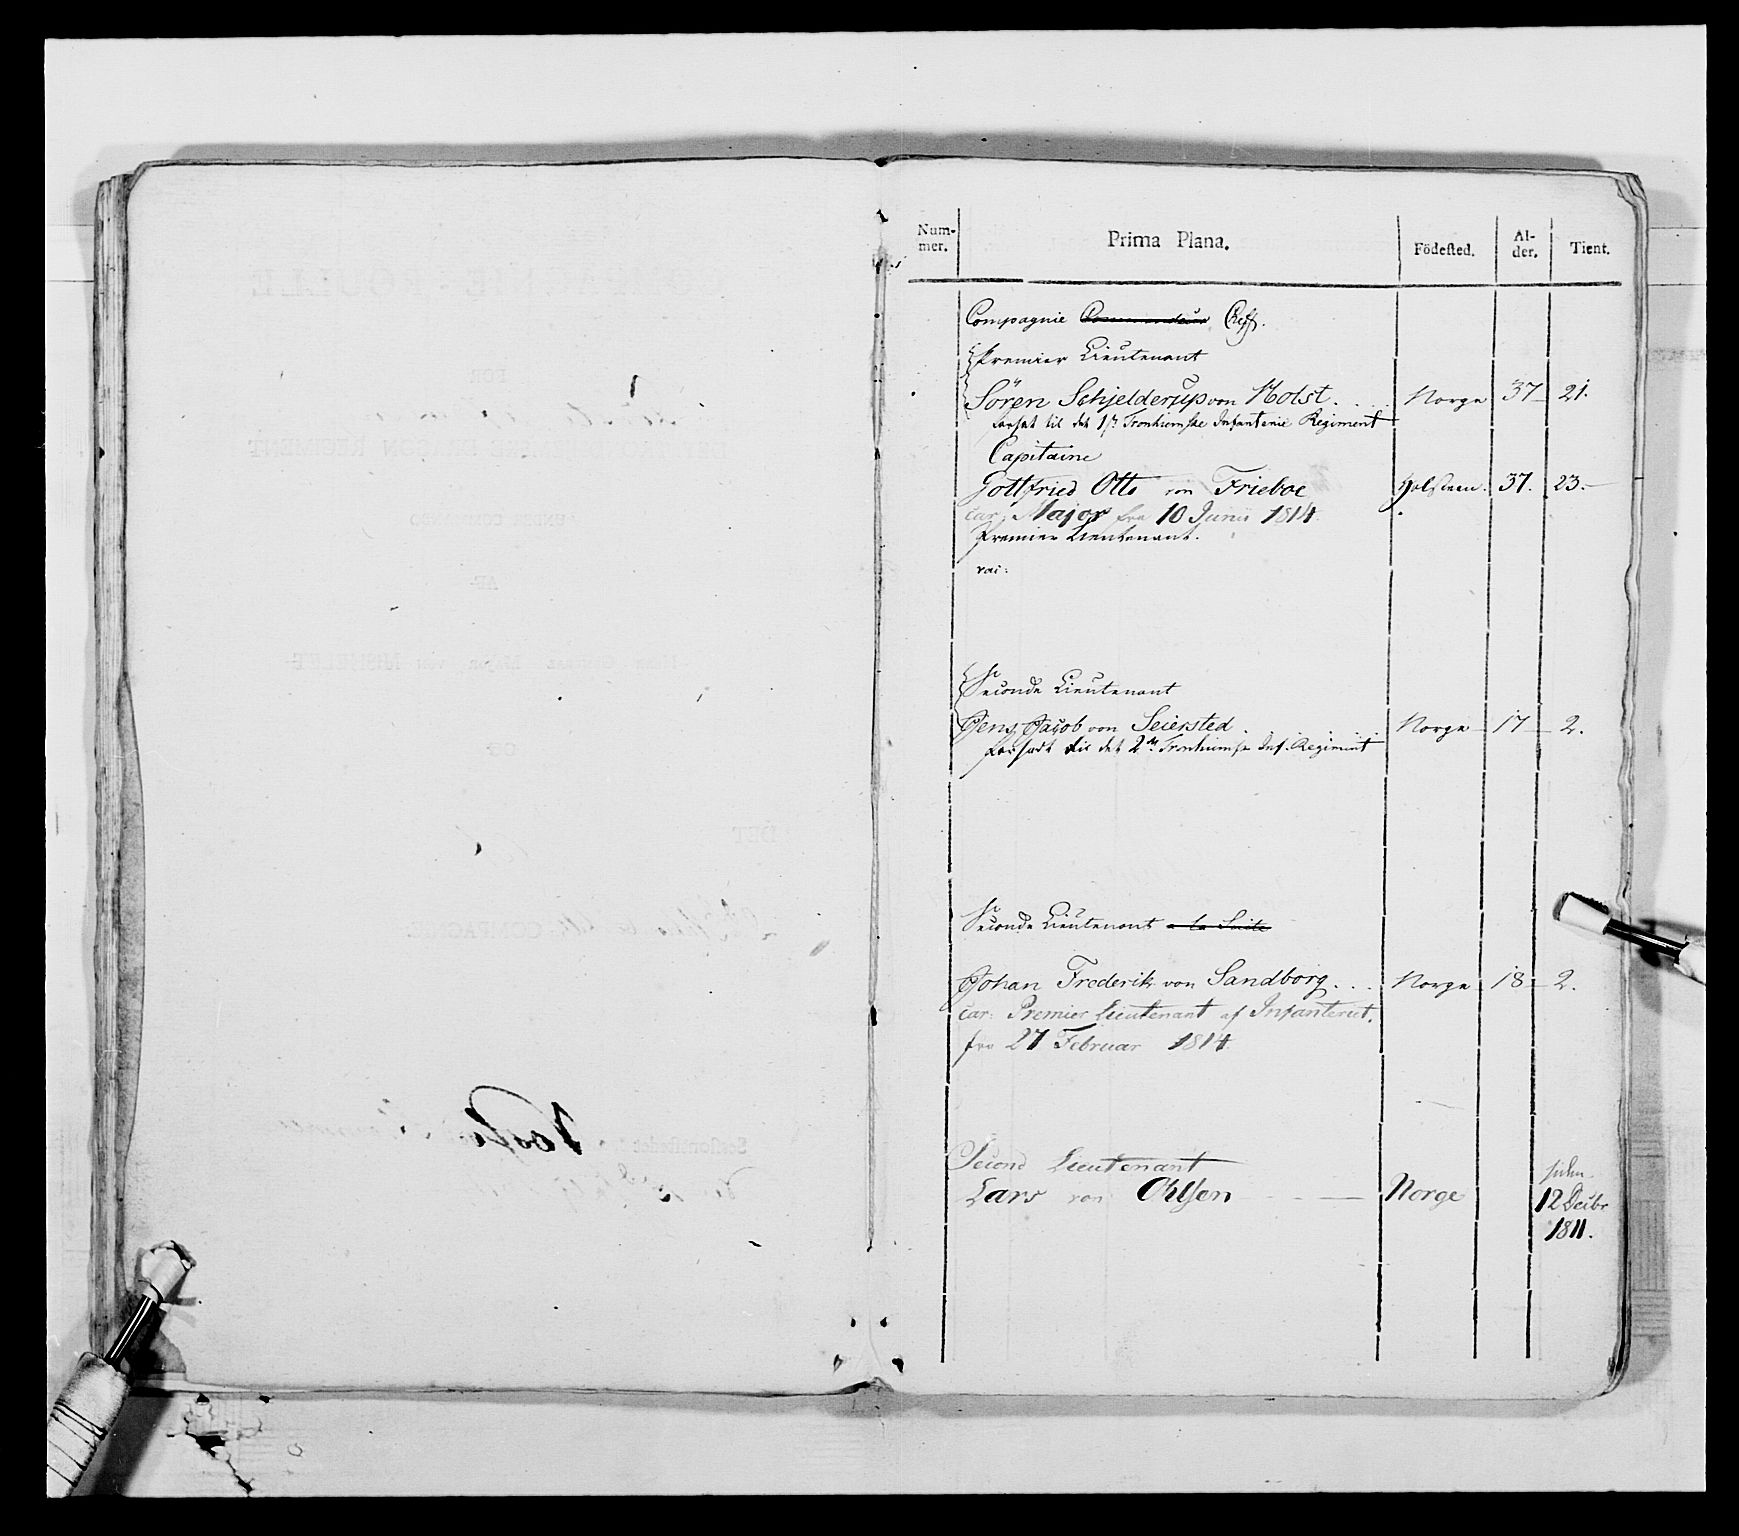 Num-
mer.
Prima Plana.
Födested.
Al-
der.
Tient.
Compagnie Commandeur Cheff.
Premier Lieutenant
Sören Schjelderup von Holst. Norge 37 21.
forsat til det 1ste Tronhiemske Infanterie Regiment
Capitaine
Gottfried Otto von Frieboe Holsteen. 37. 23.
car: Major fra 10 Junii 1814.
Premier Lieutenant.
vac:
Seconde Lieutenant
Jens Jacob von Seiersted Norge 17 2.
forsadt til det 2det Tronhiemske Inf. Regiment
Seconde Lieutenant a la Suite
Johan Frederik von Sandborg Norge 18 2.
car: Premier Lieutenant af Infanteriet.
fra 27 Februar 1814.
Second Lieutenant
Lars von Ohlsen Norge
siden
12 Decbr
1811.